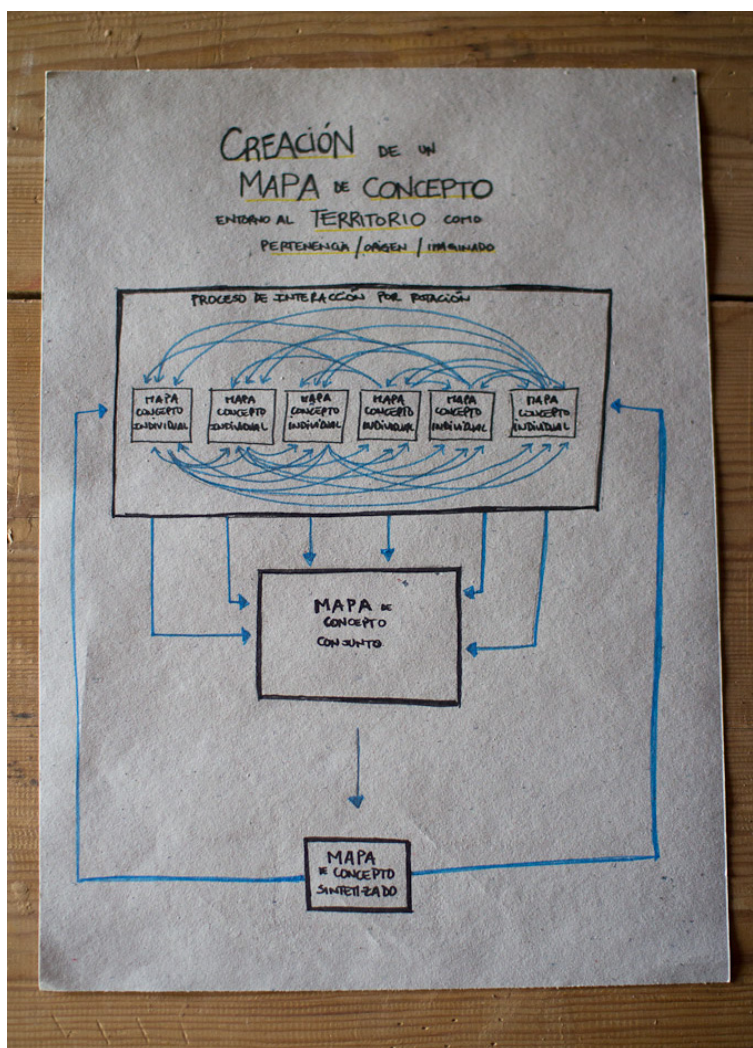 CREACIÓN DE UN
MAPA DE CONCEPTO
ENTORNO AL TERRITORIO COMO
PERTENENCIA / ORIGEN / IMAGINADO
PROCESO DE INTERACCIÓN POR ROTACIÓN
MAPA
CONCEPTO
INDIVIDUAL
MAPA
CONCEPTO
INDIVIDUAL
MAPA
CONCEPTO
INDIVIDUAL
MAPA
CONCEPTO
INDIVIDUAL
MAPA
CONCEPTO
INDIVIDUAL
MAPA
CONCEPTO
INDIVIDUAL
MAPA DE
CONCEPTO
CONJUNTO
MAPA
DE CONCEPTO
SINTETIZADO